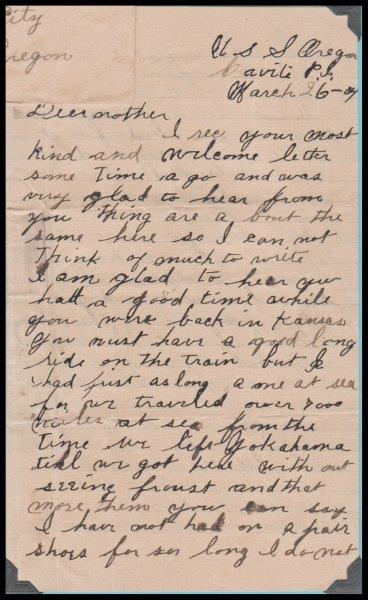 City
Oregon
U S S Oregon
Cavite P.I.
March 26-04
Dear mother
I rec your most
kind and welcome letter
some time a go and was
very glad to hear from
you thing are a bout the
same here so I can not
think of much to write
I am glad to hear you
had a good time awhile
you were back in Kansas
you must have a good long
ride on the train but I
had just as long a one at sea
for we traveled over 7000
miles at sea from the
time we left Yokahama
till we got here with out
seeing and that
more them you can say
I have not had on a pair
shoes for so long I do not